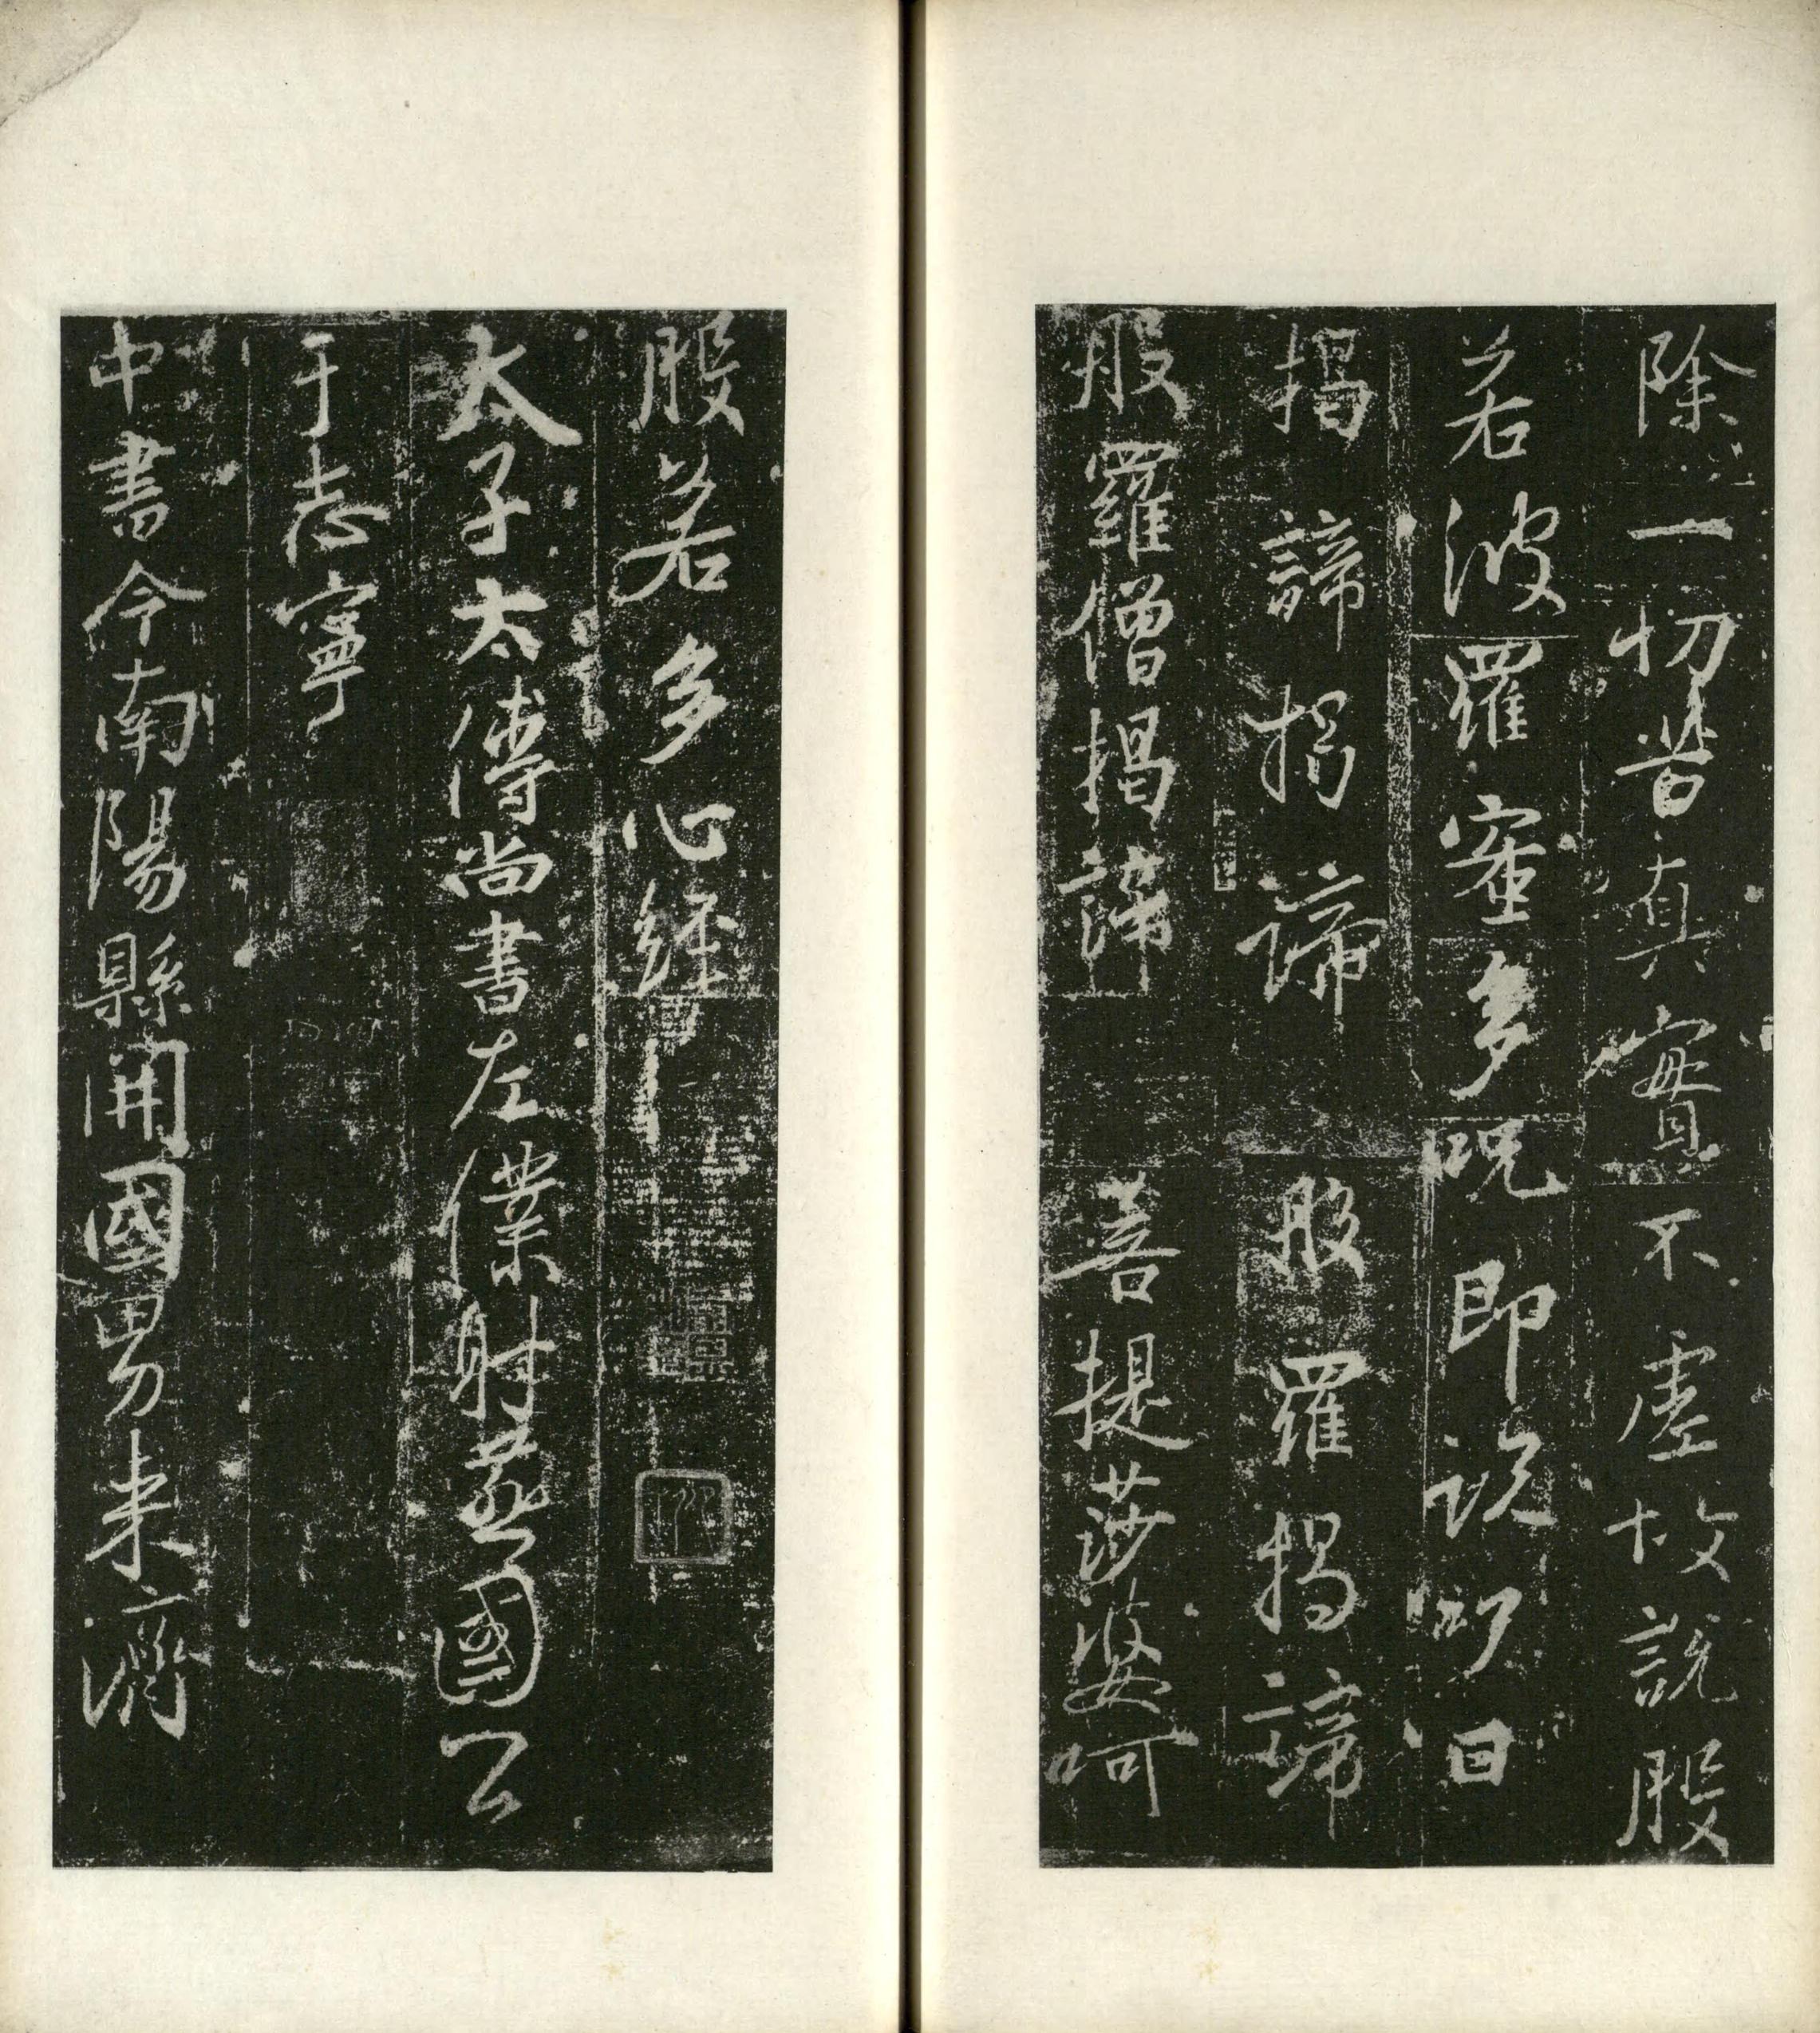 除一切苦真實不虛故說般
若波羅蜜多呪即說呪曰
揭諦揭諦　般羅揭諦
般羅僧揭諦　菩提莎婆呵
般若多心經
太子太傅尚書左僕射燕國公
于志寧
中書令南陽縣開國男来濟